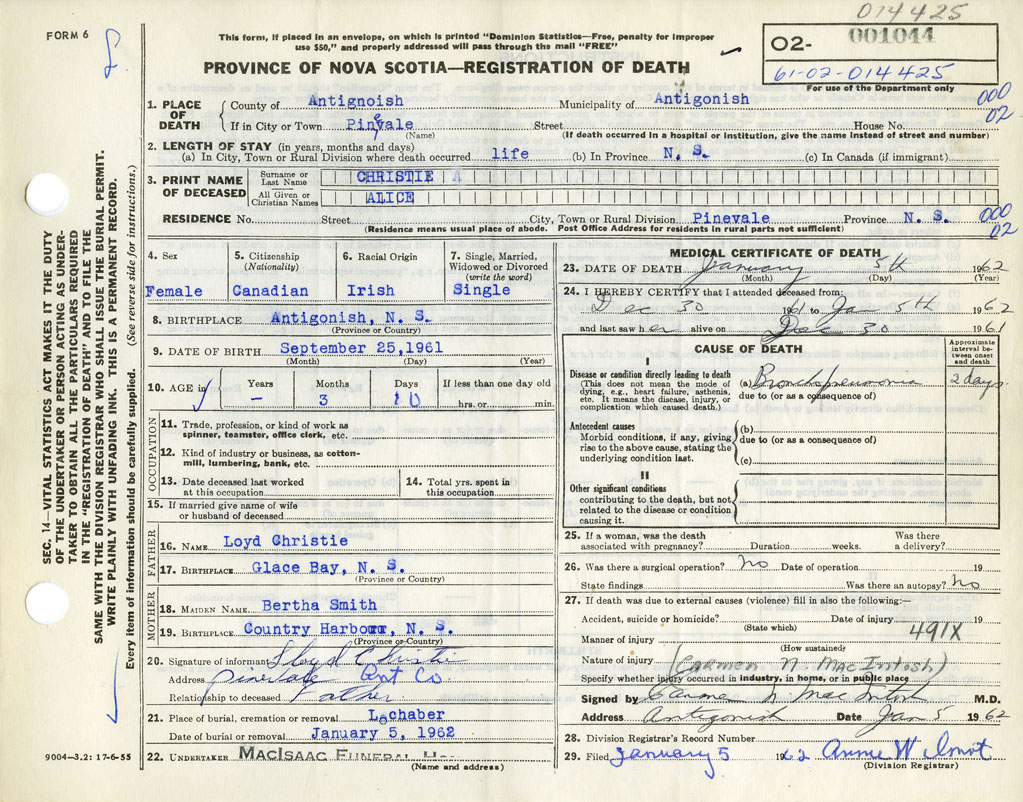 014425
FORM 6
This form, if placed in an envelope, on which is printed "Dominion Statistics—Free, penalty for improper
use $50," and properly addressed will pass through the mail "FREE"
PROVINCE OF NOVA SCOTIA—REGISTRATION OF DEATH
02- 001044
61-02-014425
For use of the Department only
1. PLACE OF DEATH
County of Antignoish Municipality of Antigonish 000
If in City or Town Pinevale Street House No. 02
(Name) (If death occurred in a hospital or institution, give the name instead of street and number)
2. LENGTH OF STAY (in years, months and days)
(a) In City, Town or Rural Division where death occurred life (b) In Province N. S. (c) In Canada (if immigrant)
3. PRINT NAME OF DECEASED
Surname or Last Name CHRISTIE A
All Given or Christian Names ALICE
RESIDENCE No. Street City, Town or Rural Division Pinevale Province N. S. 000
(Residence means usual place of abode. Post Office Address for residents in rural parts not sufficient) 02
4. Sex
Female
5. Citizenship
(Nationality)
Canadian
6. Racial Origin
Irish
7. Single, Married,
Widowed or Divorced
(write the word)
Single
8. BIRTHPLACE Antigonish, N. S.
(Province or Country)
9. DATE OF BIRTH September 25,1961
(Month) (Day) (Year)
10. AGE in Years Months Days If less than one day old
- 3 10 hrs. or min.
OCCUPATION
11. Trade, profession, or kind of work as
spinner, teamster, office clerk, etc.
12. Kind of industry or business, as cotton-
mill, lumbering, bank, etc.
13. Date deceased last worked
at this occupation
14. Total yrs. spent in
this occupation
15. If married give name of wife
or husband of deceased
FATHER
16. NAME Loyd Christie
17. BIRTHPLACE Glace Bay, N. S.
(Province or Country)
MOTHER
18. MAIDEN NAME Bertha Smith
19. BIRTHPLACE Country Harbour, N. S.
(Province or Country)
20. Signature of informant Lloyd Christie
Address Pinevale Ant Co.
Relationship to deceased Father
21. Place of burial, cremation or removal Lochaber
Date of burial or removal January 5, 1962
22. UNDERTAKER MACISAAC FUNERAL H
(Name and address)
9004—3.2: 17-6-55
MEDICAL CERTIFICATE OF DEATH
23. DATE OF DEATH January 5th 1962
(Month) (Day) (Year)
24. I HEREBY CERTIFY that I attended deceased from:
Dec 30 1961 to Jan 5th 1962
and last saw her alive on Dec 30 1961
CAUSE OF DEATH
Approximate interval between onset and death
I
Disease or condition directly leading to death
(This does not mean the mode of
dying, e.g., heart failure, asthenia,
etc. It means the disease, injury, or
complication which caused death.)
(a) Bronchopneumonia 2 days
due to (or as a consequence of)
Antecedent causes
Morbid conditions, if any, giving
rise to the above cause, stating the
underlying condition last.
(b)
due to (or as a consequence of)
(c)
II
Other significant conditions
contributing to the death, but not
related to the disease or condition
causing it.
25. If a woman, was the death Was there
associated with pregnancy? Duration weeks. a delivery?
26. Was there a surgical operation? no Date of operation 19
State findings Was there an autopsy? no
27. If death was due to external causes (violence) fill in also the following:—
Accident, suicide or homicide? Date of injury 19
(State which) 491X
Manner of injury
(How sustained)
Nature of injury (CARMEN N. MACINTOSH)
Specify whether injury occurred in industry, in home, or in public place
Signed by Carmen N MacIntosh M.D.
Address Antigonish Date Jan 5 1962
28. Division Registrar's Record Number
29. Filed January 5 1962 Annie Wilmot
(Division Registrar)
SEC. 14—VITAL STATISTICS ACT MAKES IT THE DUTY
OF THE UNDERTAKER OR PERSON ACTING AS UNDER-
TAKER TO OBTAIN ALL THE PARTICULARS REQUIRED
IN THE "REGISTRATION OF DEATH" AND TO FILE THE
SAME WITH THE DIVISION REGISTRAR WHO SHALL ISSUE THE BURIAL PERMIT.
WRITE PLAINLY WITH UNFADING INK. THIS IS A PERMANENT RECORD.
Every item of information should be carefully supplied. (See reverse side for instructions.)